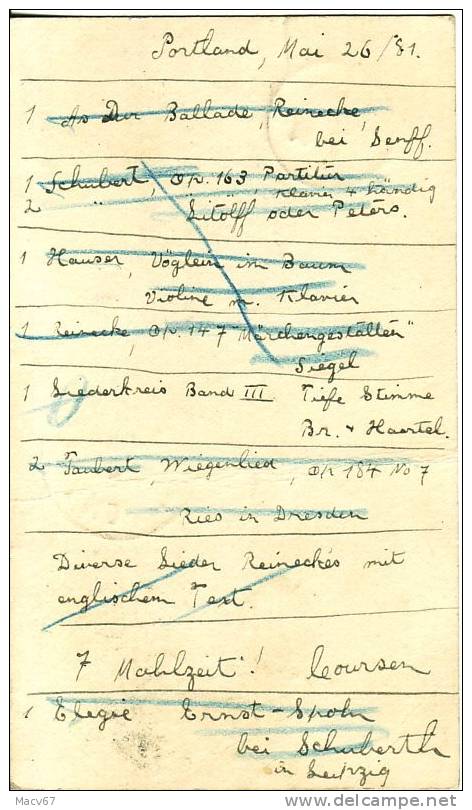 Portland, Mai 26/81.
1 As Dur Ballade, Reinecke,
bei Senff.
1 Schubert, Op. 163, Partitur
2 " " Klavier 4 händig
Litolff oder Peters.
1 Hauser, Vöglein im Baum
Violine m. Klavier
1 Reinecke, Op. 147 "Märchengestalten"
Siegel
1 Liederkreis Band III Tiefe Stimme
Br. & Haertel.
2 Taubert, Wiegenlied, Op 184 No 7
Ries in Dresden
Diverse Lieder Reineckes mit
englischem Text.
Mahlzeit! Coursen
1 Elegie Ernst-Spohr
bei Schuberth
in Leipzig
Macv67
delcampe.net